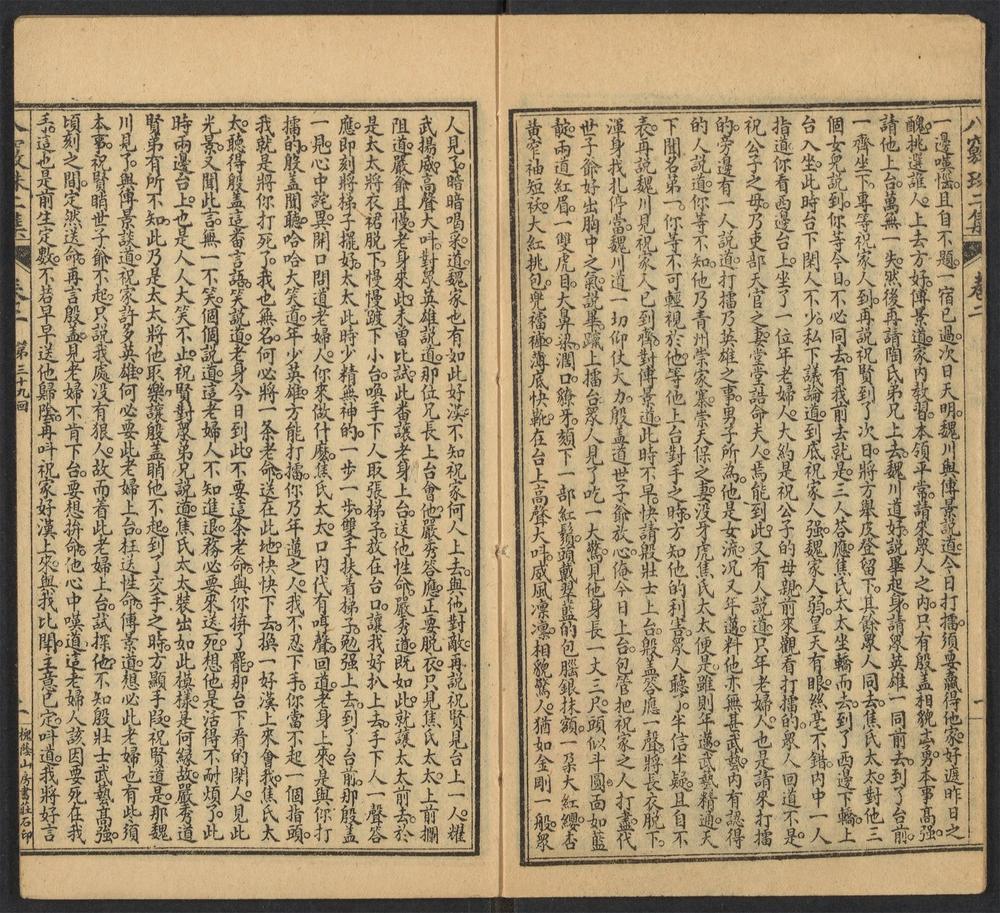 八竅珠二集 卷二 一
一邊嗟怪且自不題一宿已過次日天明魏川與傅景說道今日打擂須要贏得他家好遮昨日之
醜挑選誰人上去方好傅景道家內教習本領平常請來眾人之內只有殷盖相貌古勇本事高強
請他上台萬無一失然後再請閻氏弟兄上去魏川道好說畢起身請眾英雄一同前去到了台前
一齊坐下專等祝家人到再說祝賢到了次日將方舉皮登留下其餘眾人同去焦氏太太對他三
個女兒說到你等今日不必同去有我前去就是三人答應焦氏太太坐轎而去到了西邊下轎上
台入坐此時台下閑人不少私下議論道到底祝家人强魏家人弱皇天有眼絲毫不錯內中一人
指道你看西邊台上坐了一位年老婦人大約是祝公子的母親前來觀看打擂的眾人回道不是
祝公子之母乃吏部天官之妻堂堂誥命夫人焉能到此又有人說道只年老婦人也是請來打擂
的旁邊有一人說道打擂乃英雄之事男子所為他是女流况又年邁料他亦無甚武藝內有認得
的人說道你等不知他乃青州崇家寨崇天保之妻没牙虎焦氏太太便是雖則年邁武藝精通天
下聞名第一你等不可輕視於他等他上台對手之時方知他的利害眾人聽了半信半疑且自不
表再說魏川見祝家人已到齊對傅景道此時不早快請殷壯士上台殷盖答應一聲將長衣脱下
渾身找扎停當魏川道一切仰仗大力殷盖道世子爺放心俺今日上台包管把祝家之人打盡代
世子爺好出胸中之氣說畢躥上擂台眾人見了吃一大驚見他身長一丈三尺頭似斗圓面如藍
靛兩道紅眉一雙虎目大鼻梁濶口獠牙頦下一部紅鬚頭戴翠藍的包腦銀抹額一朶大紅纓杏
黄窄袖短袄大紅挑包兜襠褲薄底快靴在台上高聲大呌威風凛凛相貌驚人猶如金剛一般眾
人見了暗暗喝采道魏家也有如此好漢不知祝家何人上去與他對敵再說祝賢見台上一人耀
武揚威高聲大呌對眾英雄說道那位兄長上台會他嚴秀答應正要脱衣只見焦氏太太上前攔
阻道嚴爺且慢老身來此未曾比試此畨讓老身上台送他性命嚴秀道既如此就讓太太前去於
是太太將衣裙脱下慢慢踱下小台喚手下人取張梯子放在台口讓我好扒上去手下人一聲答
應即刻將梯子擺好太太此時少精無神的一步一步雙手扶着梯子勉强上去到了台前那殷盖
一見心中詫異開口問道老婦人你來做什麽焦氏太太口內代有哼聲回道老身上來是與你打
擂的殷盖聞聽哈哈大笑道年少英雄方能打擂你乃年邁之人我不忍下手你當不起一個指頭
我就是將你打死了我也無名何必將一条老命送在此地快快下去換一好漢上來會我焦氏太
太聽得殷盖這番言語笑說道老身今日到此不要這条老命與你拚了罷那台下看的閑人見此
光景又聞此言無一不笑個個說道這老婦人不知進退務必要來送死想他是活得不耐煩了此
時兩邊台上也是人人大笑不止祝賢對眾弟兄說道焦氏太太裝出如此模樣是何緣故嚴秀道
賢弟有所不知此乃是太太將他取樂讓殷盖睄他不起到了交手之時方顯手段祝賢道是那魏
川見了與傅景談道祝家許多英雄何必要此老婦上台枉送性命傅景道想必此老婦也有些須
本事祝賢睄世子爺不起只說我處没有狠人故而着此老婦上台試探他不知殷壯士武藝高强
頃刻之間定然送命再言殷盖見老婦不肯下台要想拚命他心中嘆道這老婦人該因要死在我
手這也是前生定數不若早早送他歸陰再呌祝家好漢上來與我比鬪主意已定呌道我將好言
八竅珠二集 卷二 第三十九回 一 槐蔭山房書莊石印